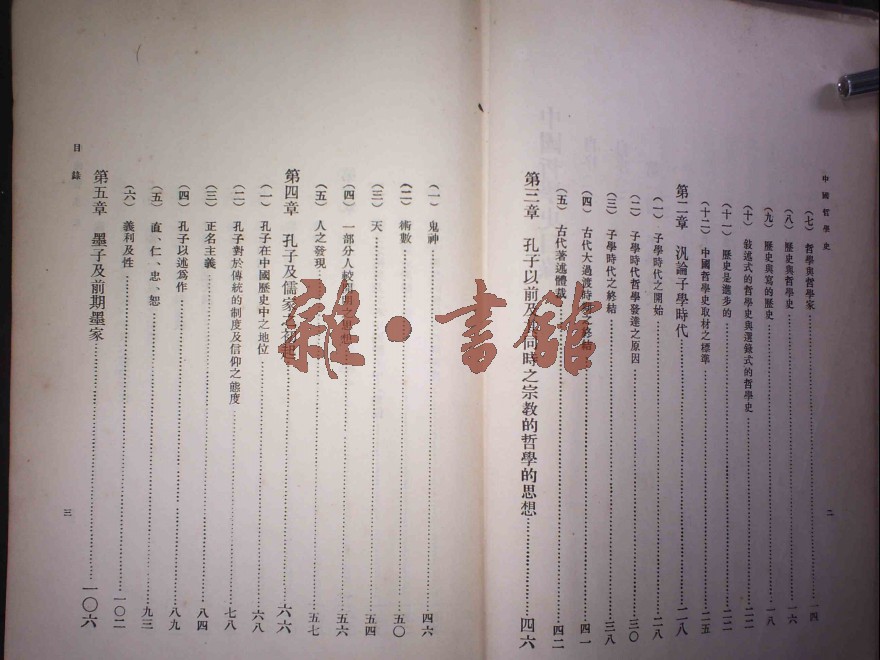 中國哲學史
（七）哲學與哲學家……一四
（八）歷史與哲學史……一六
（九）歷史與寫的歷史……一八
（十）敍述式的哲學史與選錄式的哲學史……二二
（十一）歷史是進步的……二二
（十二）中國哲學史取材之標準……二五
第二章 汎論子學時代……二八
（一）子學時代之開始……二八
（二）子學時代哲學發達之原因……三〇
（三）子學時代之終結……三八
（四）古代大過渡時期之終結……四一
（五）古代著述體裁……四二
第三章 孔子以前及其同時之宗教的哲學的思想……四六
二
（一）鬼神……四六
（二）術數……五〇
（三）天……五四
（四）一部分人較開明之思想……五六
（五）人之發現……五七
第四章 孔子及儒家之初起……六六
（一）孔子在中國歷史中之地位……六八
（二）孔子對於傳統的制度及信仰之態度……七八
（三）正名主義……八四
（四）孔子以述爲作……八九
（五）直、仁、忠、恕……九三
（六）義利及性……一〇二
第五章 墨子及前期墨家……一〇六
目錄
三
雜·書館